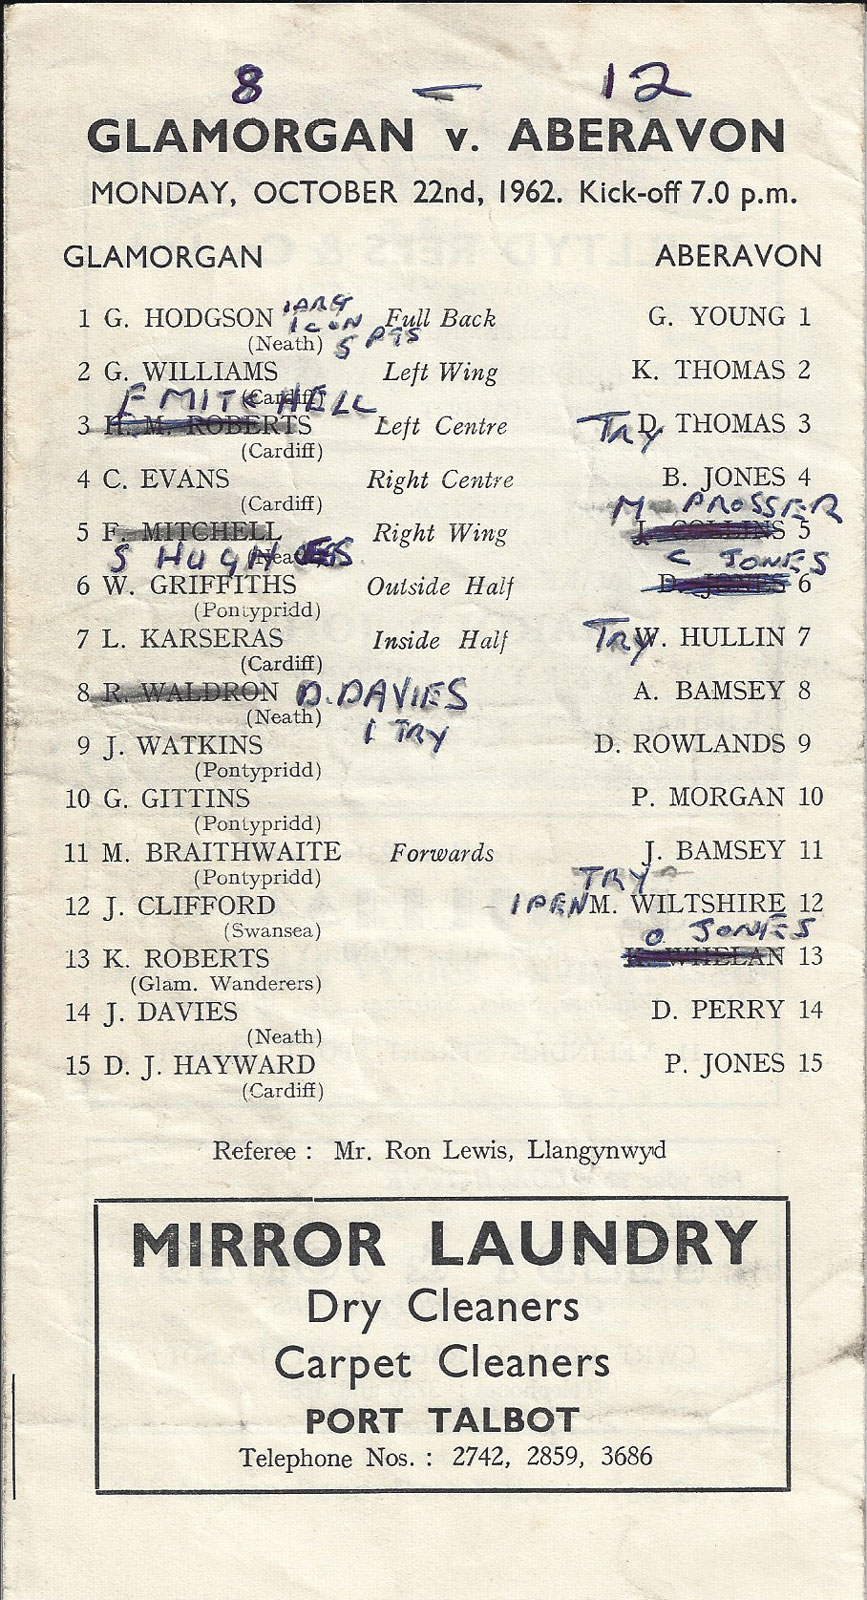 8 — 12
GLAMORGAN v. ABERAVON
MONDAY, OCTOBER 22nd, 1962. Kick-off 7.0 p.m.
GLAMORGAN ABERAVON
1 G. HODGSON Full Back G. YOUNG 1
(Neath) 1 CON 5 PGS
2 G. WILLIAMS Left Wing K. THOMAS 2
(Cardiff)
F MITCHELL
3 H. M. ROBERTS Left Centre TRY D. THOMAS 3
(Cardiff)
4 C. EVANS Right Centre B. JONES 4
(Cardiff) M PROSSER
5 F. MITCHELL Right Wing J. COLLINS 5
S HUGHES (Neath) C JONES
6 W. GRIFFITHS Outside Half D. JONES 6
(Pontypridd)
7 L. KARSERAS Inside Half TRY W. HULLIN 7
(Cardiff)
8 R. WALDRON D. DAVIES A. BAMSEY 8
(Neath) 1 TRY
9 J. WATKINS D. ROWLANDS 9
(Pontypridd)
10 G. GITTINS P. MORGAN 10
(Pontypridd)
11 M. BRAITHWAITE Forwards J. BAMSEY 11
(Pontypridd) TRY
12 J. CLIFFORD 1 PEN M. WILTSHIRE 12
(Swansea) O JONES
13 K. ROBERTS K. WHELAN 13
(Glam. Wanderers)
14 J. DAVIES D. PERRY 14
(Neath)
15 D. J. HAYWARD P. JONES 15
(Cardiff)
Referee : Mr. Ron Lewis, Llangynwyd
MIRROR LAUNDRY
Dry Cleaners
Carpet Cleaners
PORT TALBOT
Telephone Nos. : 2742, 2859, 3686